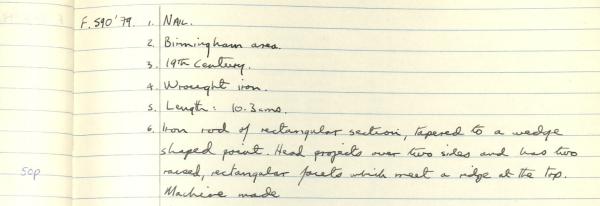 F. S90'79. 1. NAIL.
2. Birmingham area.
3. 19th Century.
4. Wrought iron.
5. Length: 10.3cms.
6. Iron rod of rectangular section, tapered to a wedge
shaped point. Head projects over two sides and has two
50p raised, rectangular facets which meet a ridge at the top.
Machine made